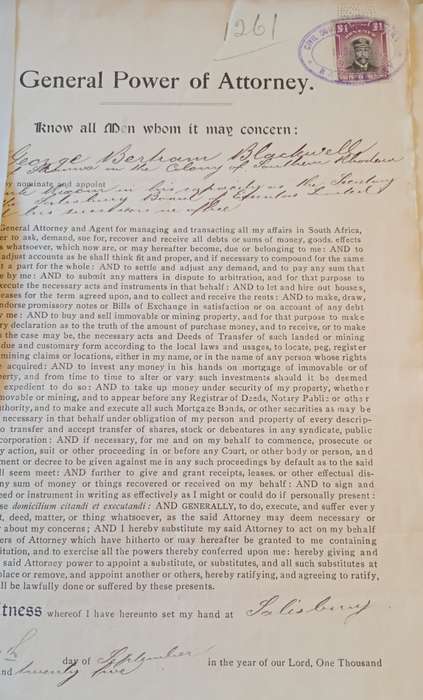 1261
£1 £1
General Power of Attorney.
Know all Men whom it may concern:
George Bertram Blackwell
in the Colony of Southern Rhodesia
by nominate and appoint
in his capacity as the Secretary
Salisbury Board of Executors Limited
his successors in office
General Attorney and Agent for managing and transacting all my affairs in South Africa,
er to ask, demand, sue for, recover and receive all debts or sums of money, goods, effects
s whatsoever, which now are, or may hereafter become, due or belonging to me: AND to
adjust accounts as he shall think fit and proper, and if necessary to compound for the same
t a part for the whole: AND to settle and adjust any demand, and to pay any sum that
e by me: AND to submit any matters in dispute to arbitration, and for that purpose to
execute the necessary acts and instruments in that behalf: AND to let and hire out houses,
eases for the term agreed upon, and to collect and receive the rents: AND to make, draw,
ndorse promissory notes or Bills of Exchange in satisfaction or on account of any debt
y me: AND to buy and sell immovable or mining property, and for that purpose to make
ry declaration as to the truth of the amount of purchase money, and to receive, or to make
s the case may be, the necessary acts and Deeds of Transfer of such landed or mining
due and customary form according to the local laws and usages, to locate, peg, register
mining claims or locations, either in my name, or in the name of any person whose rights
e acquired: AND to invest any money in his hands on mortgage of immovable or of
perty, and from time to time to alter or vary such investments should it be deemed
expedient to do so: AND to take up money under security of my property, whether
movable or mining, and to appear before any Registrar of Deeds, Notary Public or other
uthority, and to make and execute all such Mortgage Bonds, or other securities as may be
necessary in that behalf under obligation of my person and property of every descrip-
o transfer and accept transfer of shares, stock or debentures in any syndicate, public
corporation: AND if necessary, for me and on my behalf to commence, prosecute or
y action, suit or other proceeding in or before any Court, or other body or person, and
ment or decree to be given against me in any such proceedings by default as to the said
ll seem meet: AND further to give and grant receipts, leases, or other effectual dis-
ny sum of money or things recovered or received on my behalf: AND to sign and
eed or instrument in writing as effectively as I might or could do if personally present:
se domicilium citandi et executandi: AND GENERALLY, to do, execute, and suffer every
t, deed, matter, or thing whatsoever, as the said Attorney may deem necessary or
r about my concerns; AND I hereby substitute my said Attorney to act on my behalf
ers of Attorney which have hitherto or may hereafter be granted to me containing
titution, and to exercise all the powers thereby conferred upon me: hereby giving and
said Attorney power to appoint a substitute, or substitutes, and all such substitutes at
place or remove, and appoint another or others, hereby ratifying, and agreeing to ratify,
ll be lawfully done or suffered by these presents.
itness whereof I have hereunto set my hand at Salisbury
day of September in the year of our Lord, One Thousand
nd twenty five